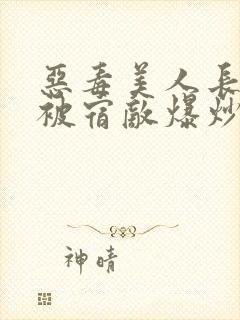 惡毒美人長
被宿敵爆炒
神晴